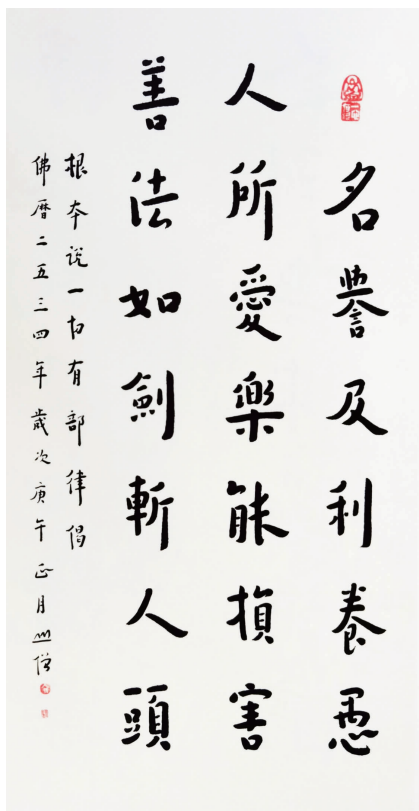 名譽及利養愚
人所愛樂能損害
善法如劍斬人頭
根本說一切有部律偈
佛曆二五三四年歲次庚午正月 僧